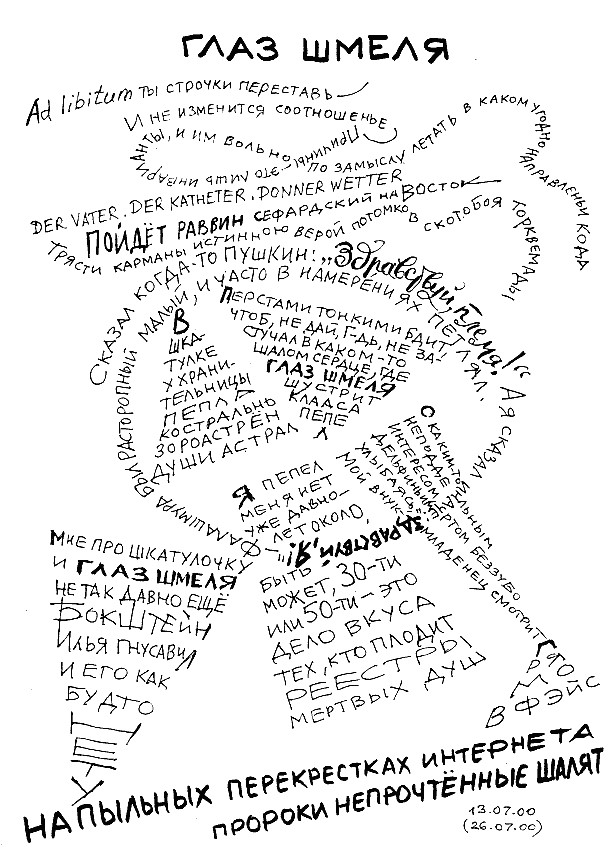 ГЛАЗ ШМЕЛЯ
Ad libitum ТЫ СТРОЧКИ ПЕРЕСТАВЬ
И НЕ ИЗМЕНИТСЯ СООТНОШЕНЬЕ
ПРИЧИНЫ — ЭТО ЛИШЬ ИНВАРИАНТЫ, И ИМ ВОЛЬНО
ПО ЗАМЫСЛУ ЛЕТАТЬ В КАКОМ УГОДНО НАПРАВЛЕНЬИ КОДА
DER VATER, DER KATHETER, DONNER WETTER
ПОЙДЁТ РАВВИН СЕФАРДСКИЙ НА ВОСТОК
ТРЯСТИ КАРМАНЫ ИСТИННОЮ ВЕРОЙ ПОТОМКОВ СКОТОБОЯ ТОРКВЕМАДЫ
СКАЗАЛ КОГДА-ТО ПУШКИН: „Здравствуй, племя!“ А Я СКАЗАЛ
ФАЛАШМУРА БЫЛ РАСТОРОПНЫЙ МАЛЫЙ, И ЧАСТО В НАМЕРЕНИЯХ ПЕТЛЯЛ.
В
ШКА-
ТУЛКЕ
У ХРАНИ-
ТЕЛЬНИЦЫ
ПЕПЛА
КОСТРАЛЬНЬ
ЗОРОАСТРЁН
ДУШИ АСТРАЛ
ПЕРСТАМИ ТОНКИМИ БДИТ,
ЧТОБ, НЕ ДАЙ, Г-ДЬ, НЕ ЗА-
СТУЧАЛ В КАКОМ-ТО
ШАЛОМ СЕРДЦЕ, ГДЕ
ГЛАЗ ШМЕЛЯ
ШУСТРИТ
КЛААСА
ПЕПЕ
Л
Я ПЕПЕЛ
МЕНЯ НЕТ
УЖЕ ДАВНО —
ЛЕТ ОКОЛО,
„ЗДРАВСТВУЙ, Я!“
БЫТЬ
МОЖЕТ, 30-ТИ
ИЛИ 50-ТИ — ЭТО
ДЕЛО ВКУСА
ТЕХ, КТО ПЛОДИТ
РЕЕСТРЫ
МЕРТВЫХ ДУШ
С КАКИМ-ТО
НЕПОДДЕЛЬНЫМ
ИНТЕРЕСОМ
УЛЫБАЯСЬ,
МОЙ ВНУК МЛАДЕНЕЦ СМОТРИТ
ГЯО
РМО
В ФЭЙС
МНЕ ПРО ШКАТУЛОЧКУ
И ГЛАЗ ШМЕЛЯ
НЕ ТАК ДАВНО ЕЩЁ
БОКШТЕЙН
ИЛЬЯ ГНУСАВИЛ
И ЕГО КАК
БУДТО
НЕТУ
НА ПЫЛЬНЫХ ПЕРЕКРЕСТКАХ ИНТЕРНЕТА
ПРОРОКИ НЕПРОЧТЁННЫЕ ШАЛЯТ
13.07.00
(26.07.00)